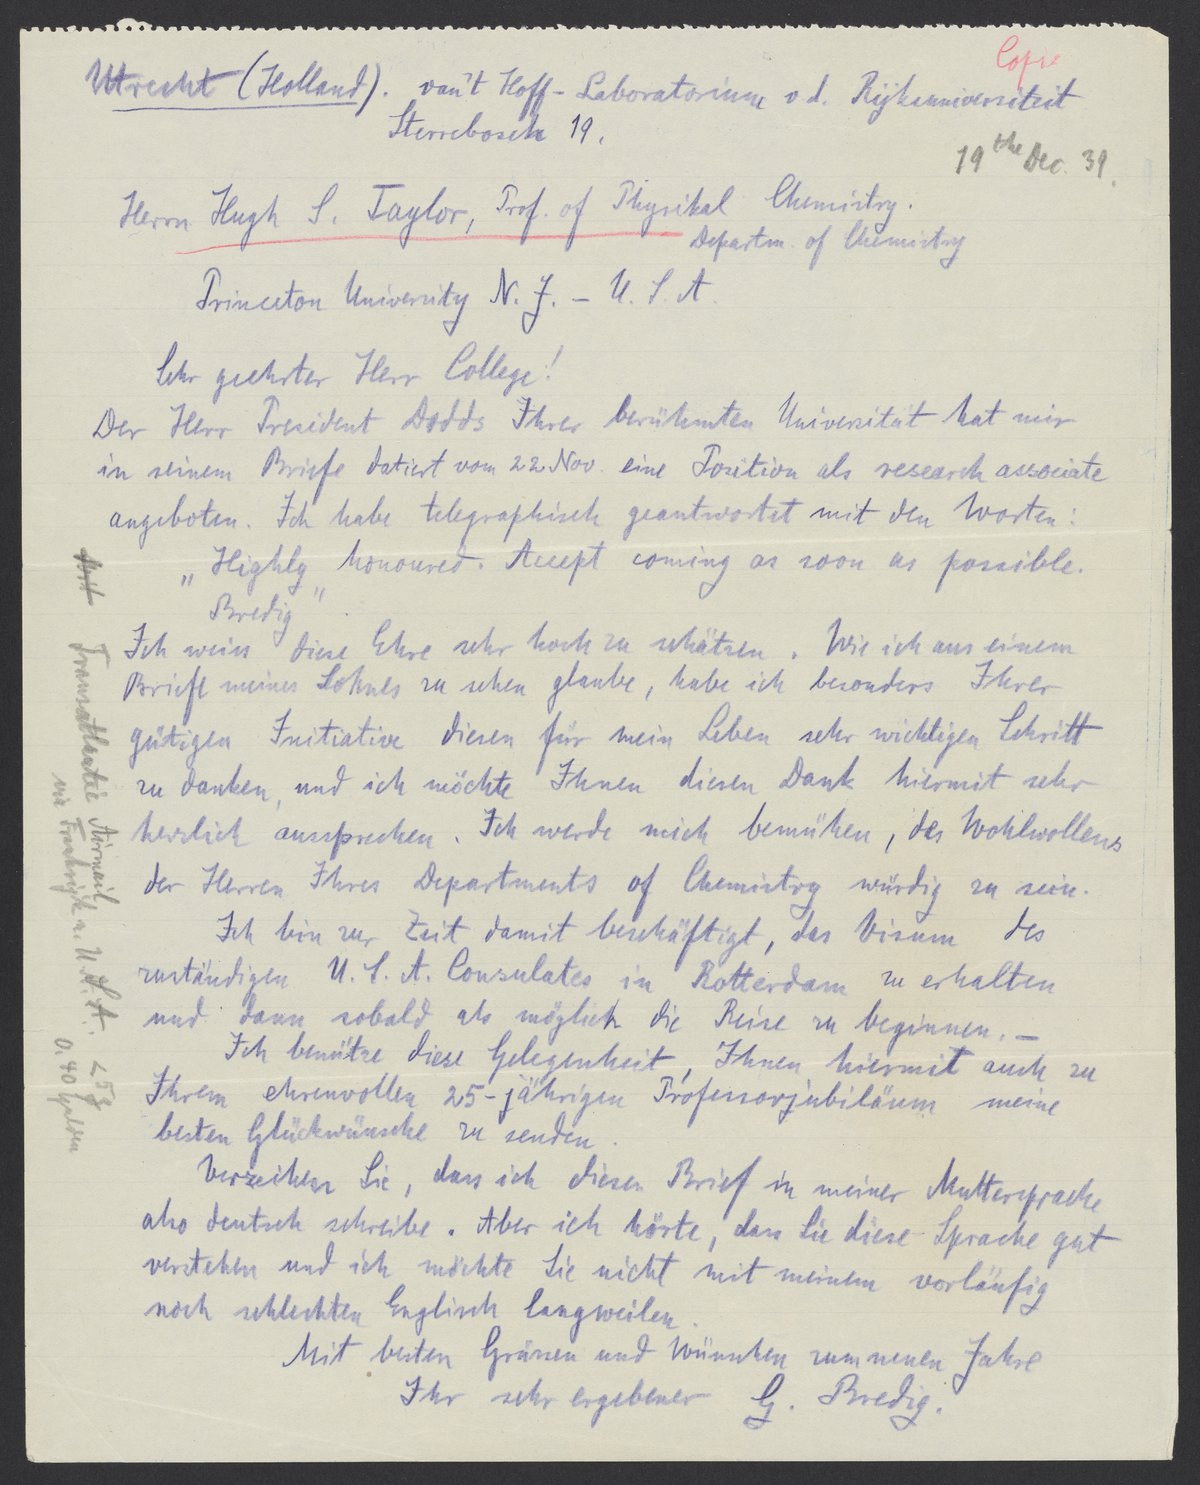 Copie
Utrecht (Holland). van't Hoff-Laboratorium v d. Rijksuniversiteit
Sterrebosch 19.
19the Dec. 39.
Herrn Hugh S. Taylor, Prof. of Physikal Chemistry.
Departm. of Chemistry
Princeton University N. J. – U. S. A.
Sehr geehrter Herr College!
Der Herr President Dodds Ihrer berühmten Universität hat mir
in seinem Briefe datiert vom 22 Nov. eine Position als research associate
angeboten. Ich habe telegraphisch geantwortet mit den Worten:
„Highly honoured. Accept coming as soon as possible.
Bredig".
Ich weiss diese Ehre sehr hoch zu schätzen. Wie ich aus einem
Briefe meines Sohnes zu sehen glaube, habe ich besonders Ihrer
gütigen Initiative diesen für mein Leben sehr wichtigen Schritt
zu danken, und ich möchte Ihnen diesen Dank hiermit sehr
herzlich aussprechen. Ich werde mich bemühen, des Wohlwollens
der Herren Ihres Departments of Chemistry würdig zu sein.
Ich bin zur Zeit damit beschäftigt, das Visum des
zuständigen U. S. A. Consulates in Rotterdam zu erhalten
und dann sobald als möglich die Reise zu beginnen. –
Ich benütze diese Gelegenheit, Ihnen hiermit auch zu
Ihrem ehrenvollen 25-jährigen Professorjubiläum meine
besten Glückwünsche zu senden.
Verzeihen Sie, dass ich diesen Brief in meiner Muttersprache
also deutsch schreibe. Aber ich hörte, dass Sie diese Sprache gut
verstehen und ich möchte Sie nicht mit meinem vorläufig
noch schlechten Englisch langweilen.
Mit besten Grüssen und Wünschen zum neuen Jahre
Ihr sehr ergebener G. Bredig.
Transatlantic Airmail
via Frankrijk n. U.S.A. <5g
0.40 Gulden